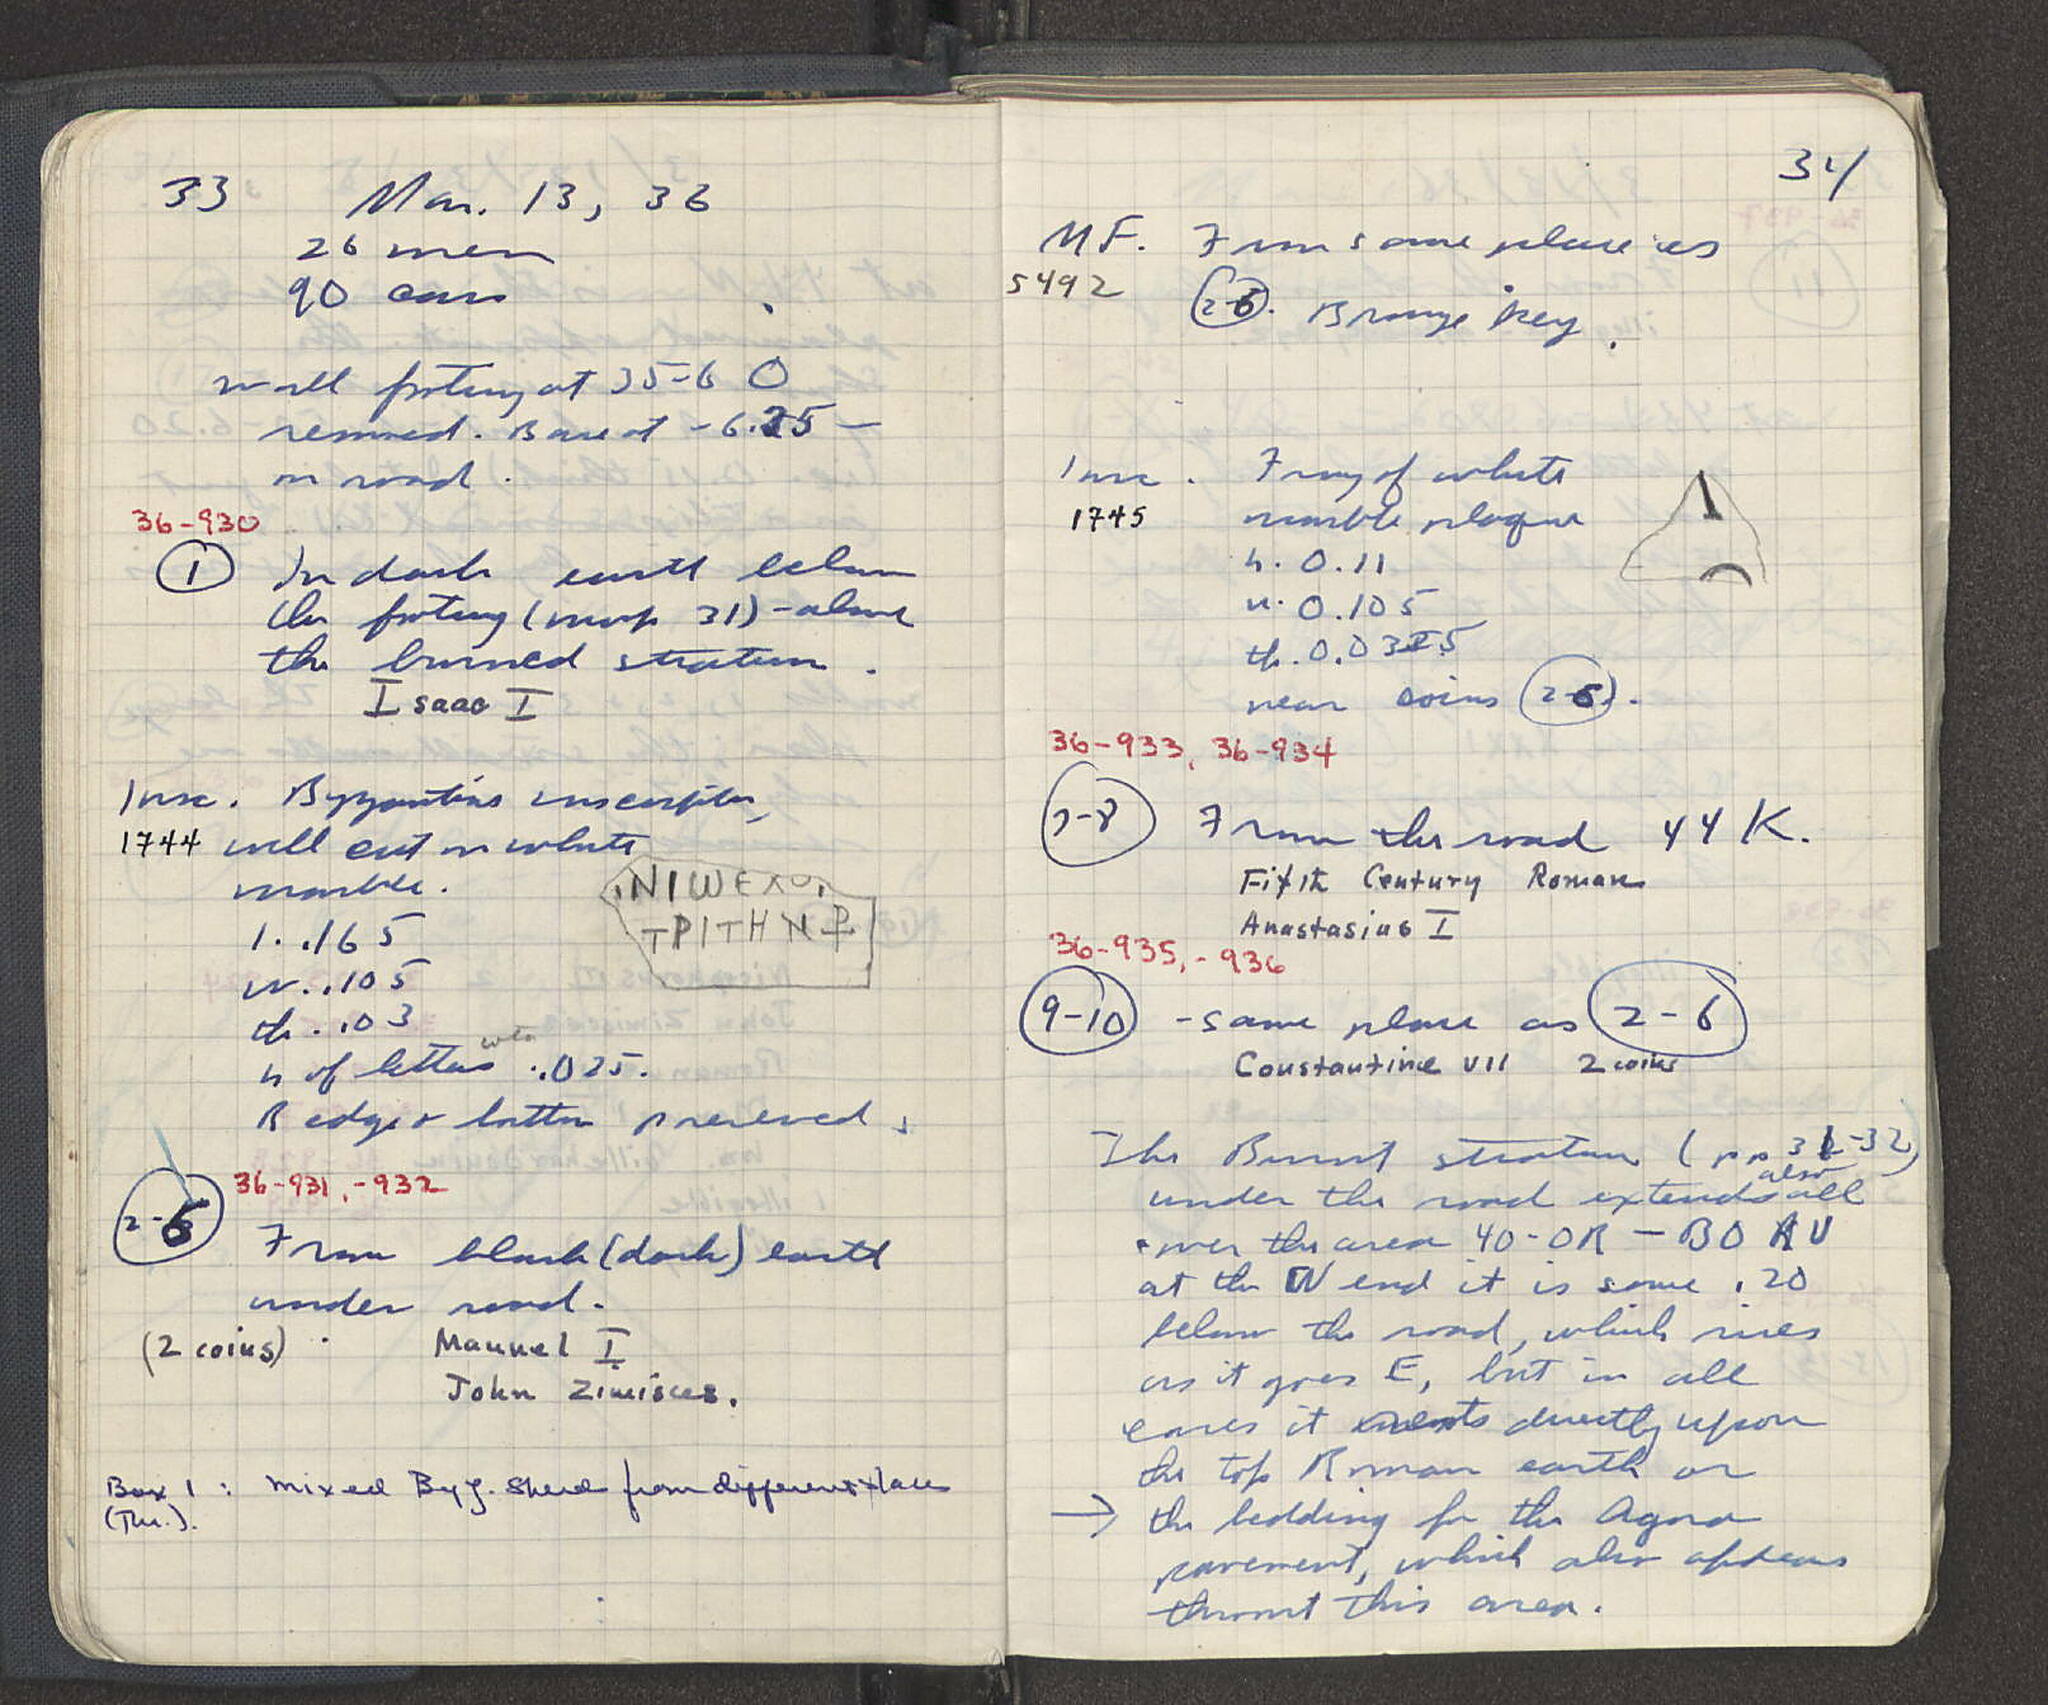 33 Mar. 13, 36
26 men
90 cars
wall footing at 35-6 O
removed. Base at -6.25 -
on road.
36-930
1 In dark earth below
the footing (   31) - above
the burned stratum.
Isaac I
Insc. Byzantine inscription,
1744 well cut on white
marble.
ΝΙWΕΧΟ
ΤΡΙΤΗΝ
l. .165
w. .105
th. .103
h of letters .025.
R edge & bottom preserved.
36-931, -932
2-6 From black (dark) earth
under road.
(2 coins) Manuel I
John Zimisces.
Box 1: Mixed Byz. Sherd from different places
(Thr.).
34
MF. From same place as
5492 2-6. Bronze key.
Insc. Frag of white
1745 marble plaque
h. 0.11
w. 0.105
th. 0.035
near coins 2-6.
36-933, 36-934
7-8 From the road 44 K.
Fifth Century Roman
Anastasius I
36-935, -936
9-10 - same place as 2-6
Constantine VII 2 coins
The Burnt stratum (pp 31-32)
under the road extends also all
over the area 40-OR - BO AU
at the W end it is some .20
below the road, which rises
as it goes E, but in all
cases it rests directly upon
the top Roman earth or
→ the bedding for the Agora
pavement, which also appears
thruout this area.